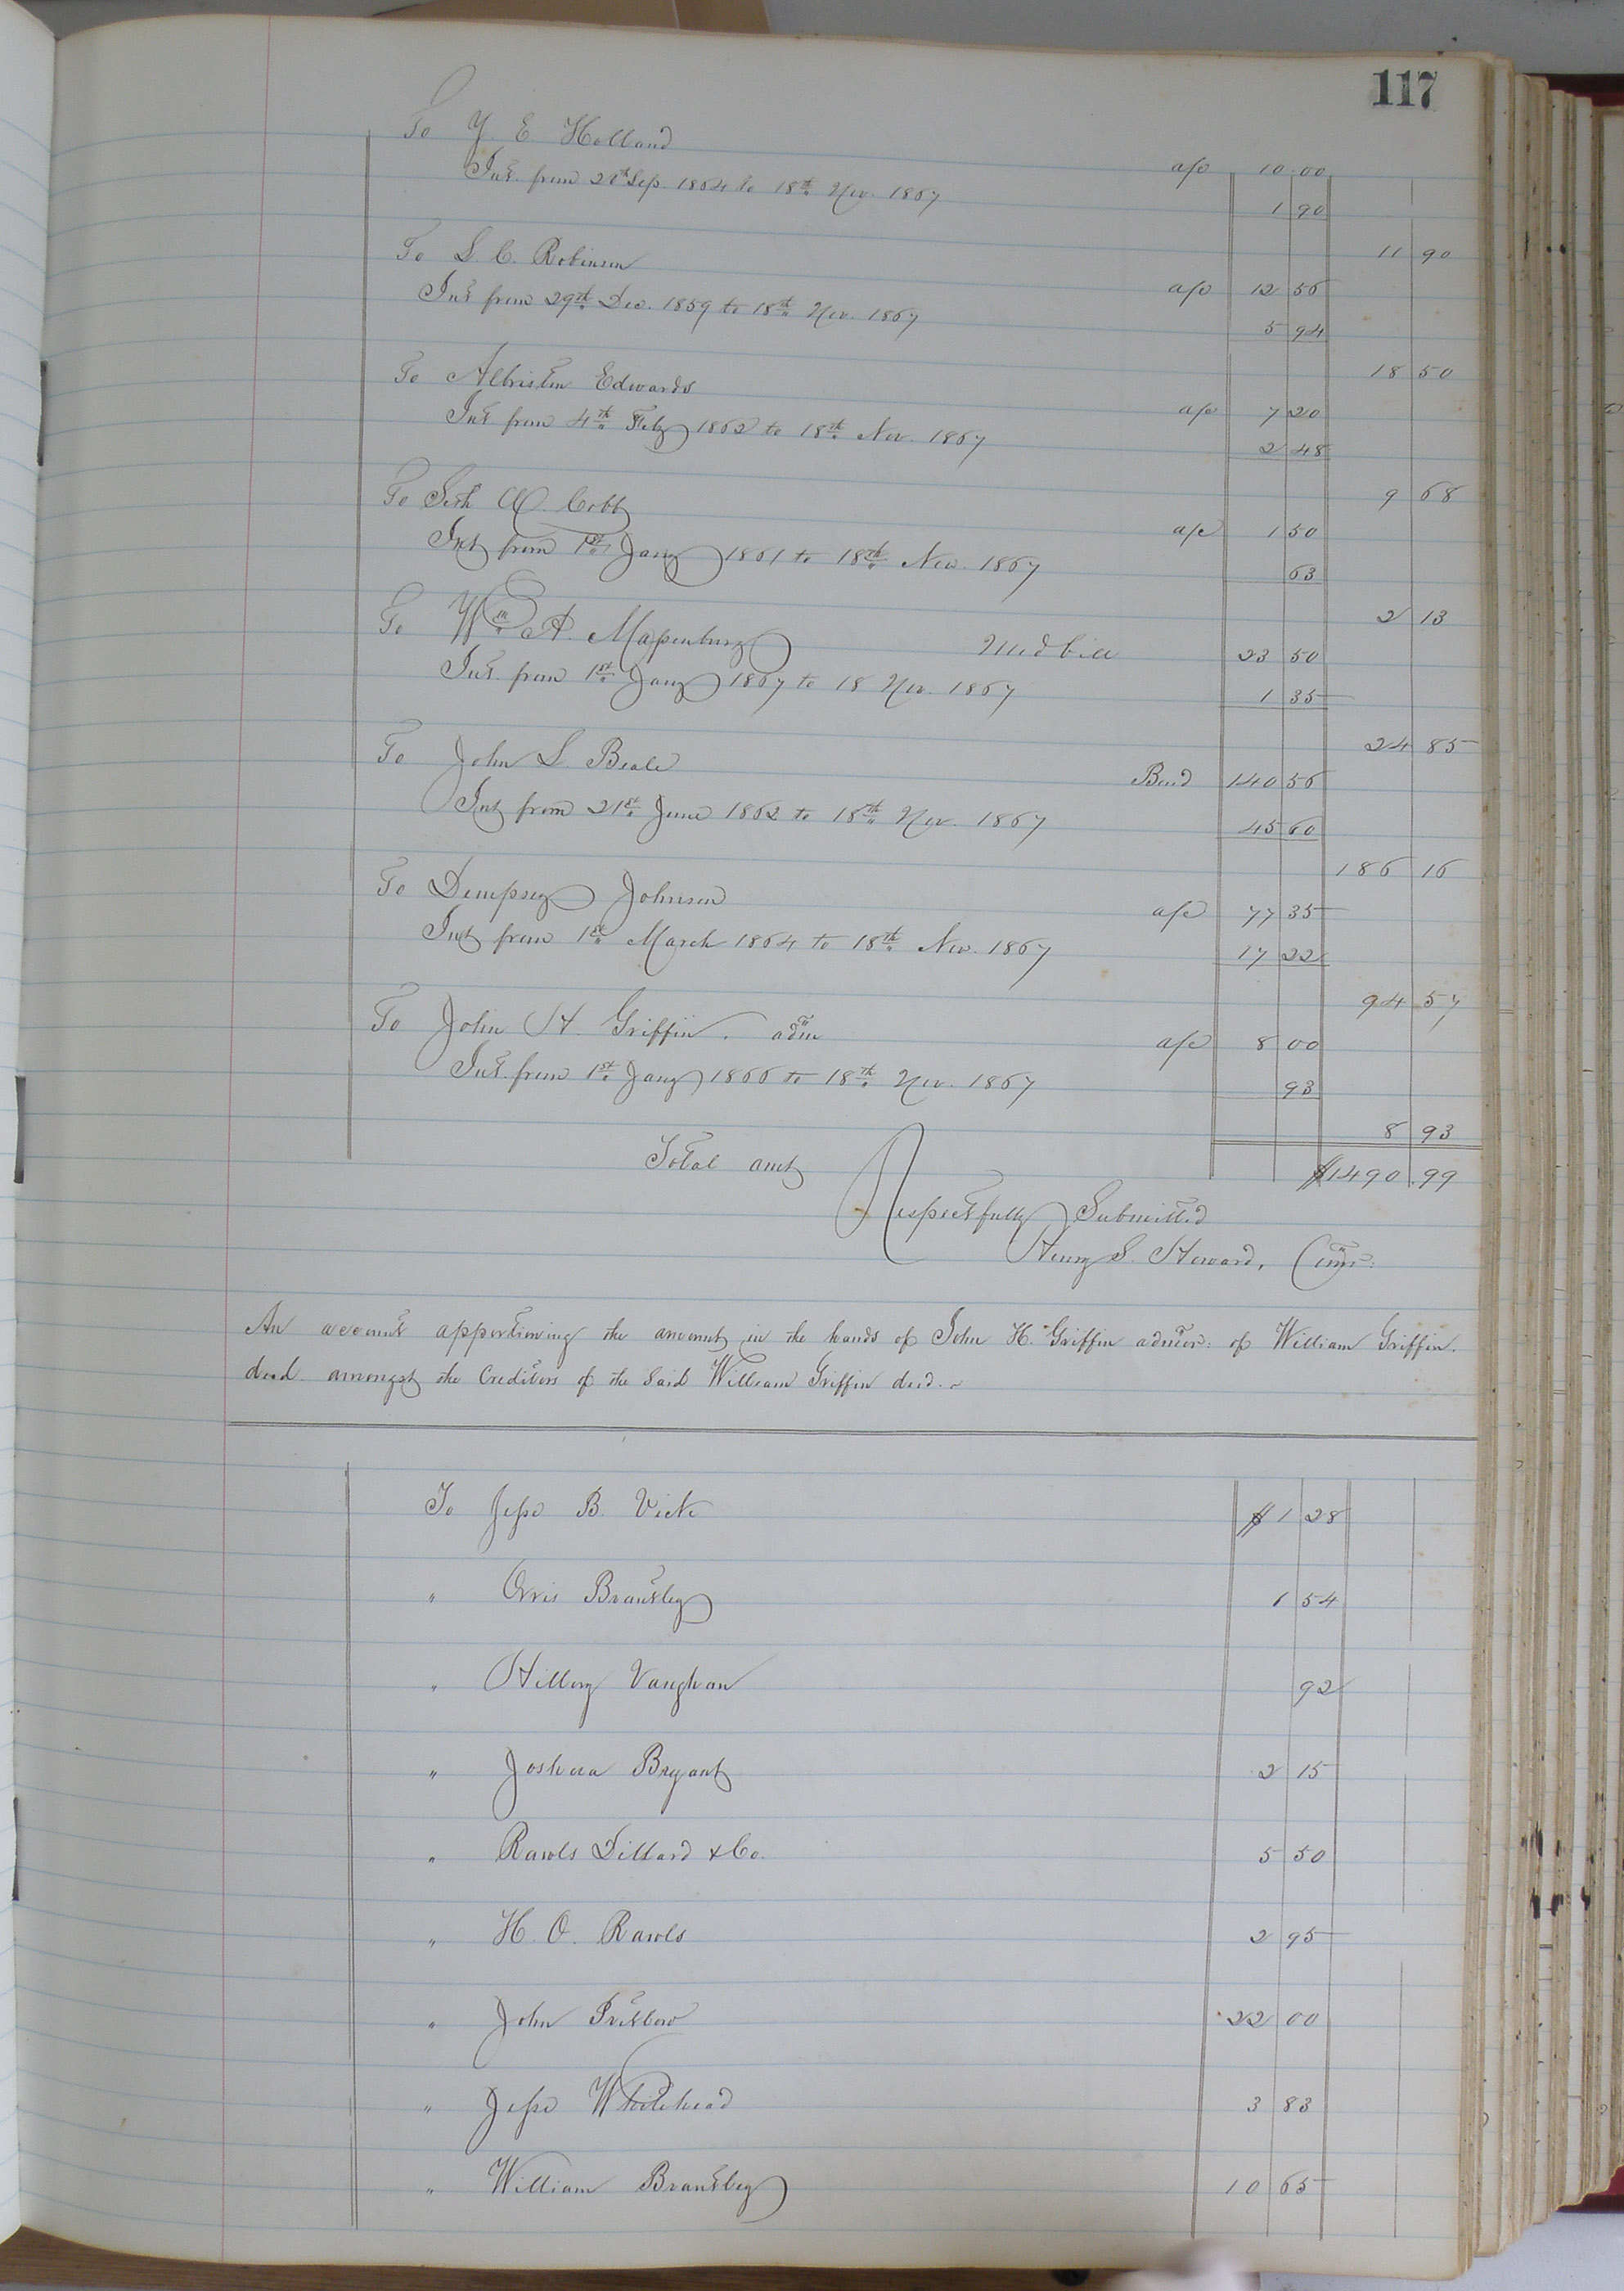 117
To Y. E. Holland a/c 10 00
Int. from 28th Sep. 1864 to 18th Nov. 1867 1 90
11 90
To S. C. Robinson a/c 12 56
Int from 29th Dec. 1859 to 18th Nov. 1867 5 94
18 50
To Albriston Edwards a/c 7 20
Int. from 4th Feby 1862 to 18th Nov. 1867 2 48
9 68
To Seth W. Cobb a/c 1 50
Int from 1st Jany 1861 to 18th Nov. 1867 63
2 13
To Wm A. Massenburg Med bill 23 50
Int. from 1st Jany 1867 to 18 Nov. 1867 1 35
24 85
To John S. Beale Bond 140 56
Int from 21st June 1862 to 18th Nov. 1867 45 60
186 16
To Dempsey Johnson a/c 77 35
Int from 1st March 1864 to 18th Nov. 1867 17 22
94 57
To John H. Griffin. adm a/c 8 00
Int. from 1st Jany 1866 to 18th Nov. 1867 93
8 93
Total amt $1490.99
Respectfully Submitted
Henry S. Howard, Comr:
An account apportioning the amount in the hands of John H. Griffin admor: of William Griffin.
decd. amongst the Creditors of the said William Griffin decd. ~
To Jesse B. Vick $1 28
" Orris Brantley 1 54
" Hillory Vaughan 92
" Joshua Bryant 2 15
" Rawls Dillard & Co. 5 50
" H. O. Rawls 2 95
" John Pretlow 22 00
" Jesse Whitehead 3 83
" William Brantley 10 65